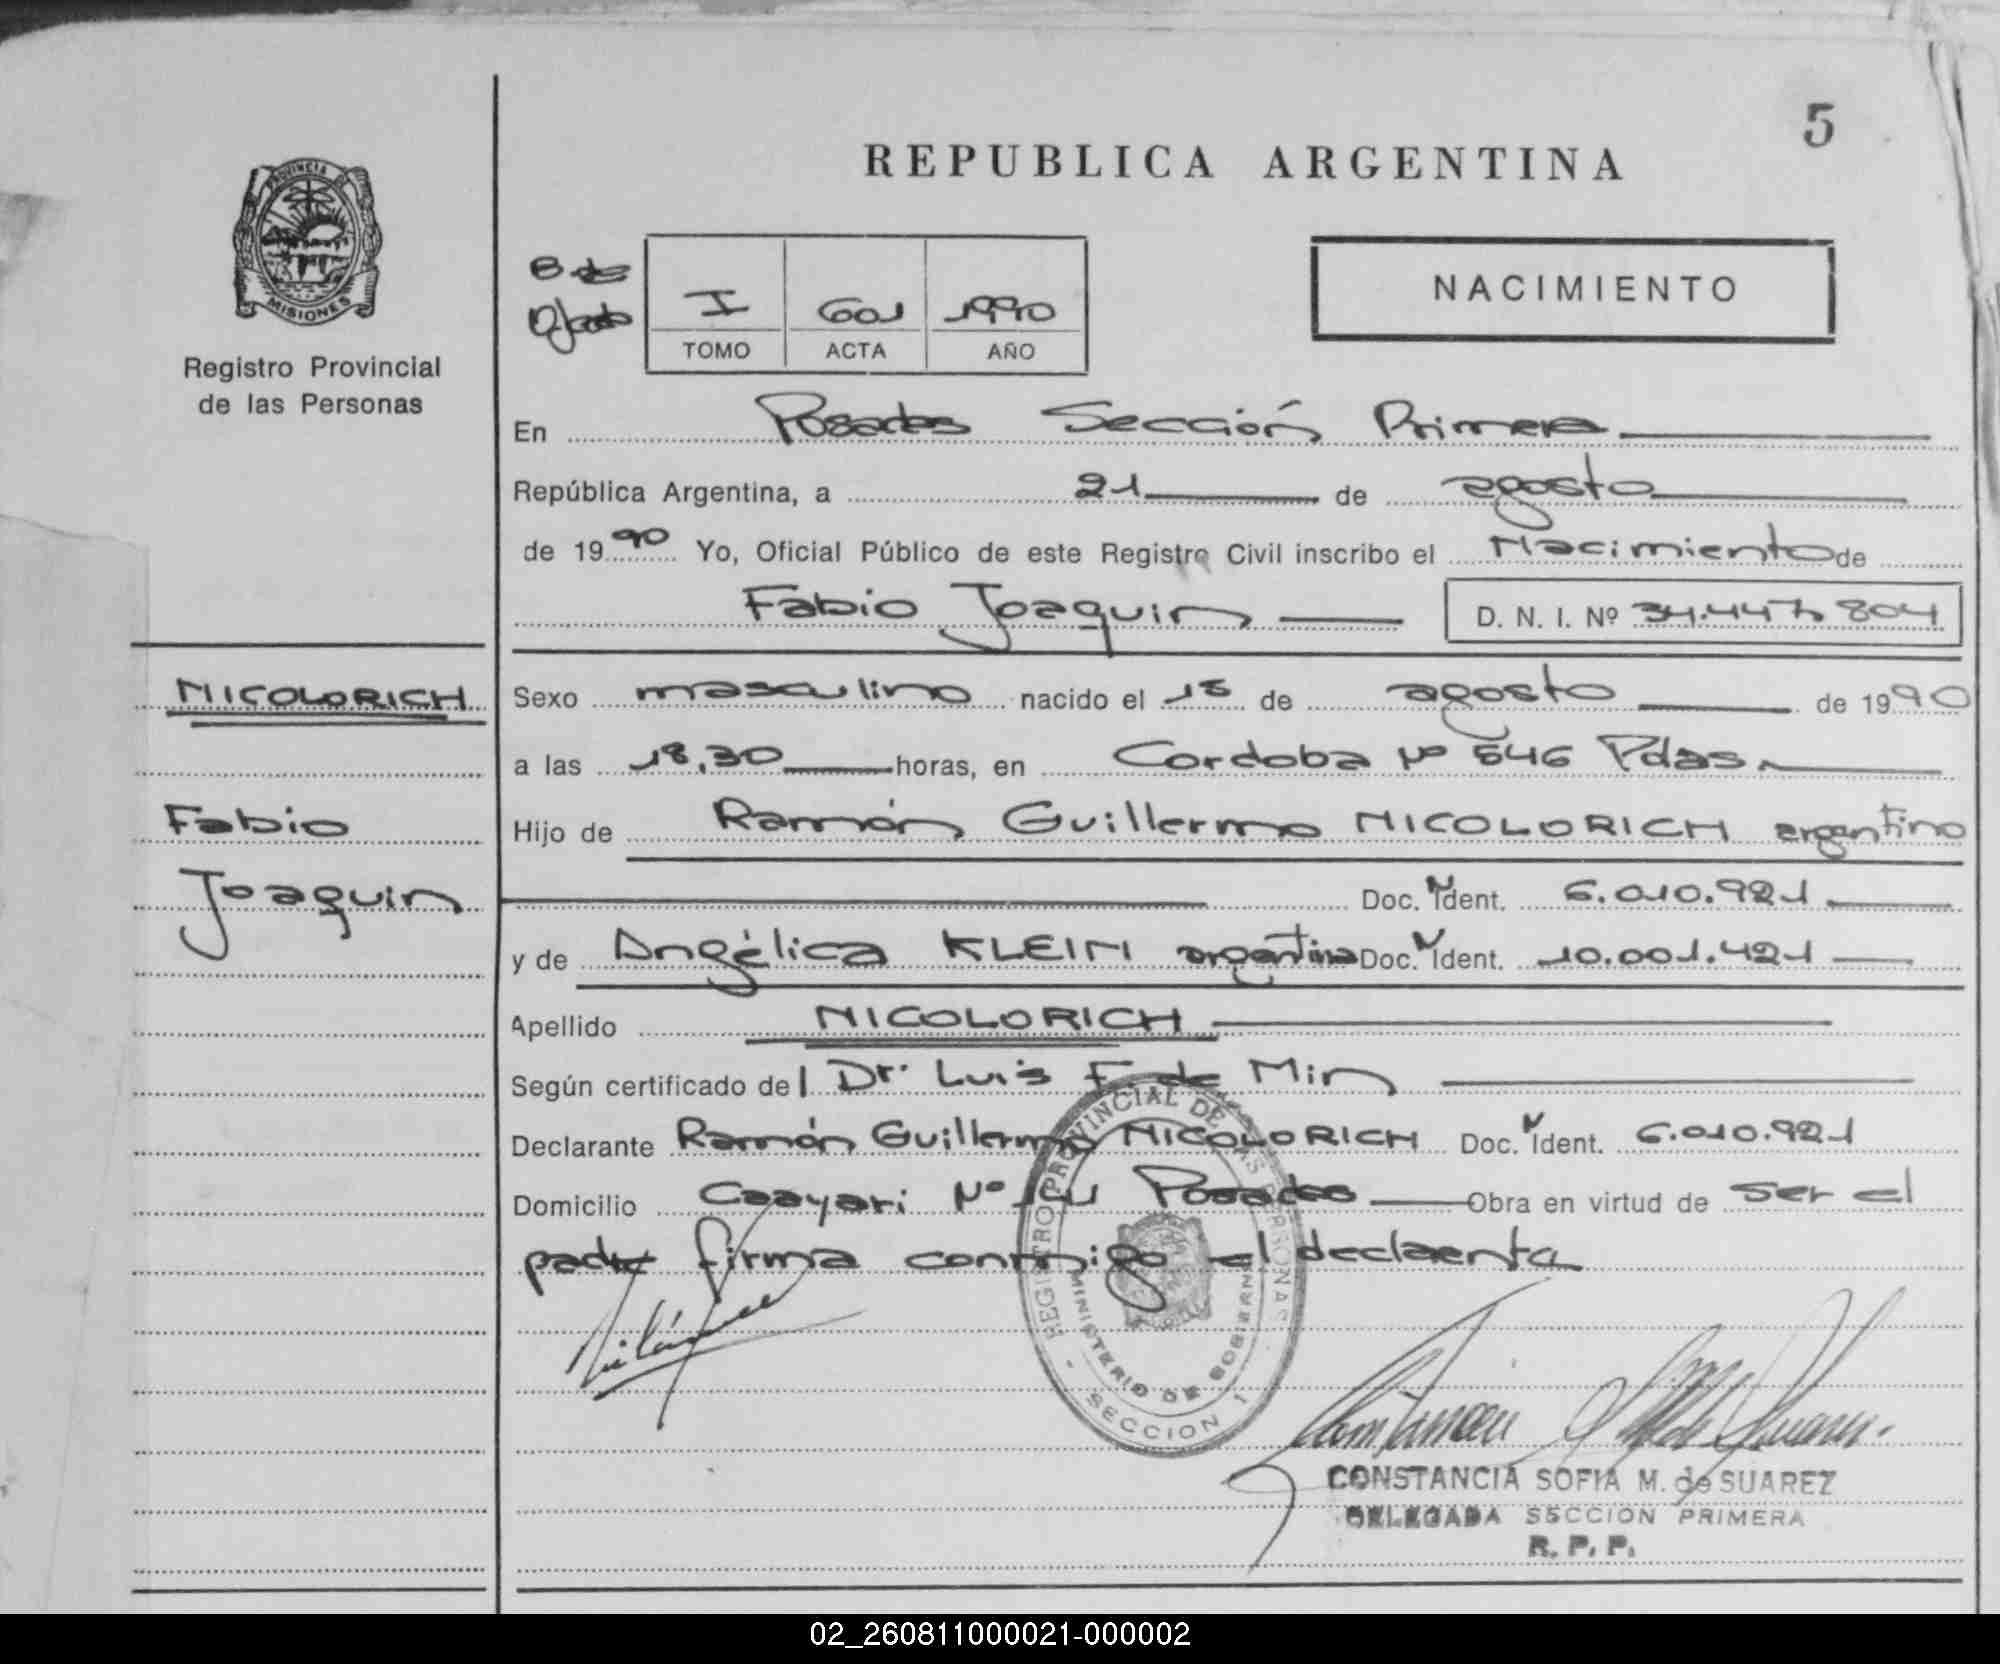 5
REPUBLICA ARGENTINA
PROVINCIA DE
MISIONES
Registro Provincial
de las Personas
B de
I 601 1990
TOMO ACTA AÑO
NACIMIENTO
En Posadas Sección Primera
República Argentina, a 21 de agosto
de 1990 Yo, Oficial Público de este Registro Civil inscribo el Nacimiento de
Fabio Joaquin D. N. I. Nº 34.447 804
NICOLORICH
Fabio
Joaquin
Sexo masculino nacido el 18 de agosto de 1990
a las 18,30 horas, en Cordoba Nº 546 Pdas.
Hijo de Ramón Guillermo NICOLORICH argentino
Doc. N Ident. 6.010.921
y de Angélica KLEIN argentina Doc. N Ident. 10.001.421
Apellido NICOLORICH
Según certificado del Dr. Luis F. de Min
Declarante Ramón Guillermo NICOLORICH Doc. N Ident. 6.010.921
Domicilio Caayari Nº Posadas Obra en virtud de ser el
padre firma conmigo el declarante
REGISTRO PROVINCIAL DE LAS PERSONAS
MINISTERIO DE GOBIERNO
SECCION 1
CONSTANCIA SOFIA M. de SUAREZ
DELEGADA SECCION PRIMERA
R. P. P.
02_260811000021-000002